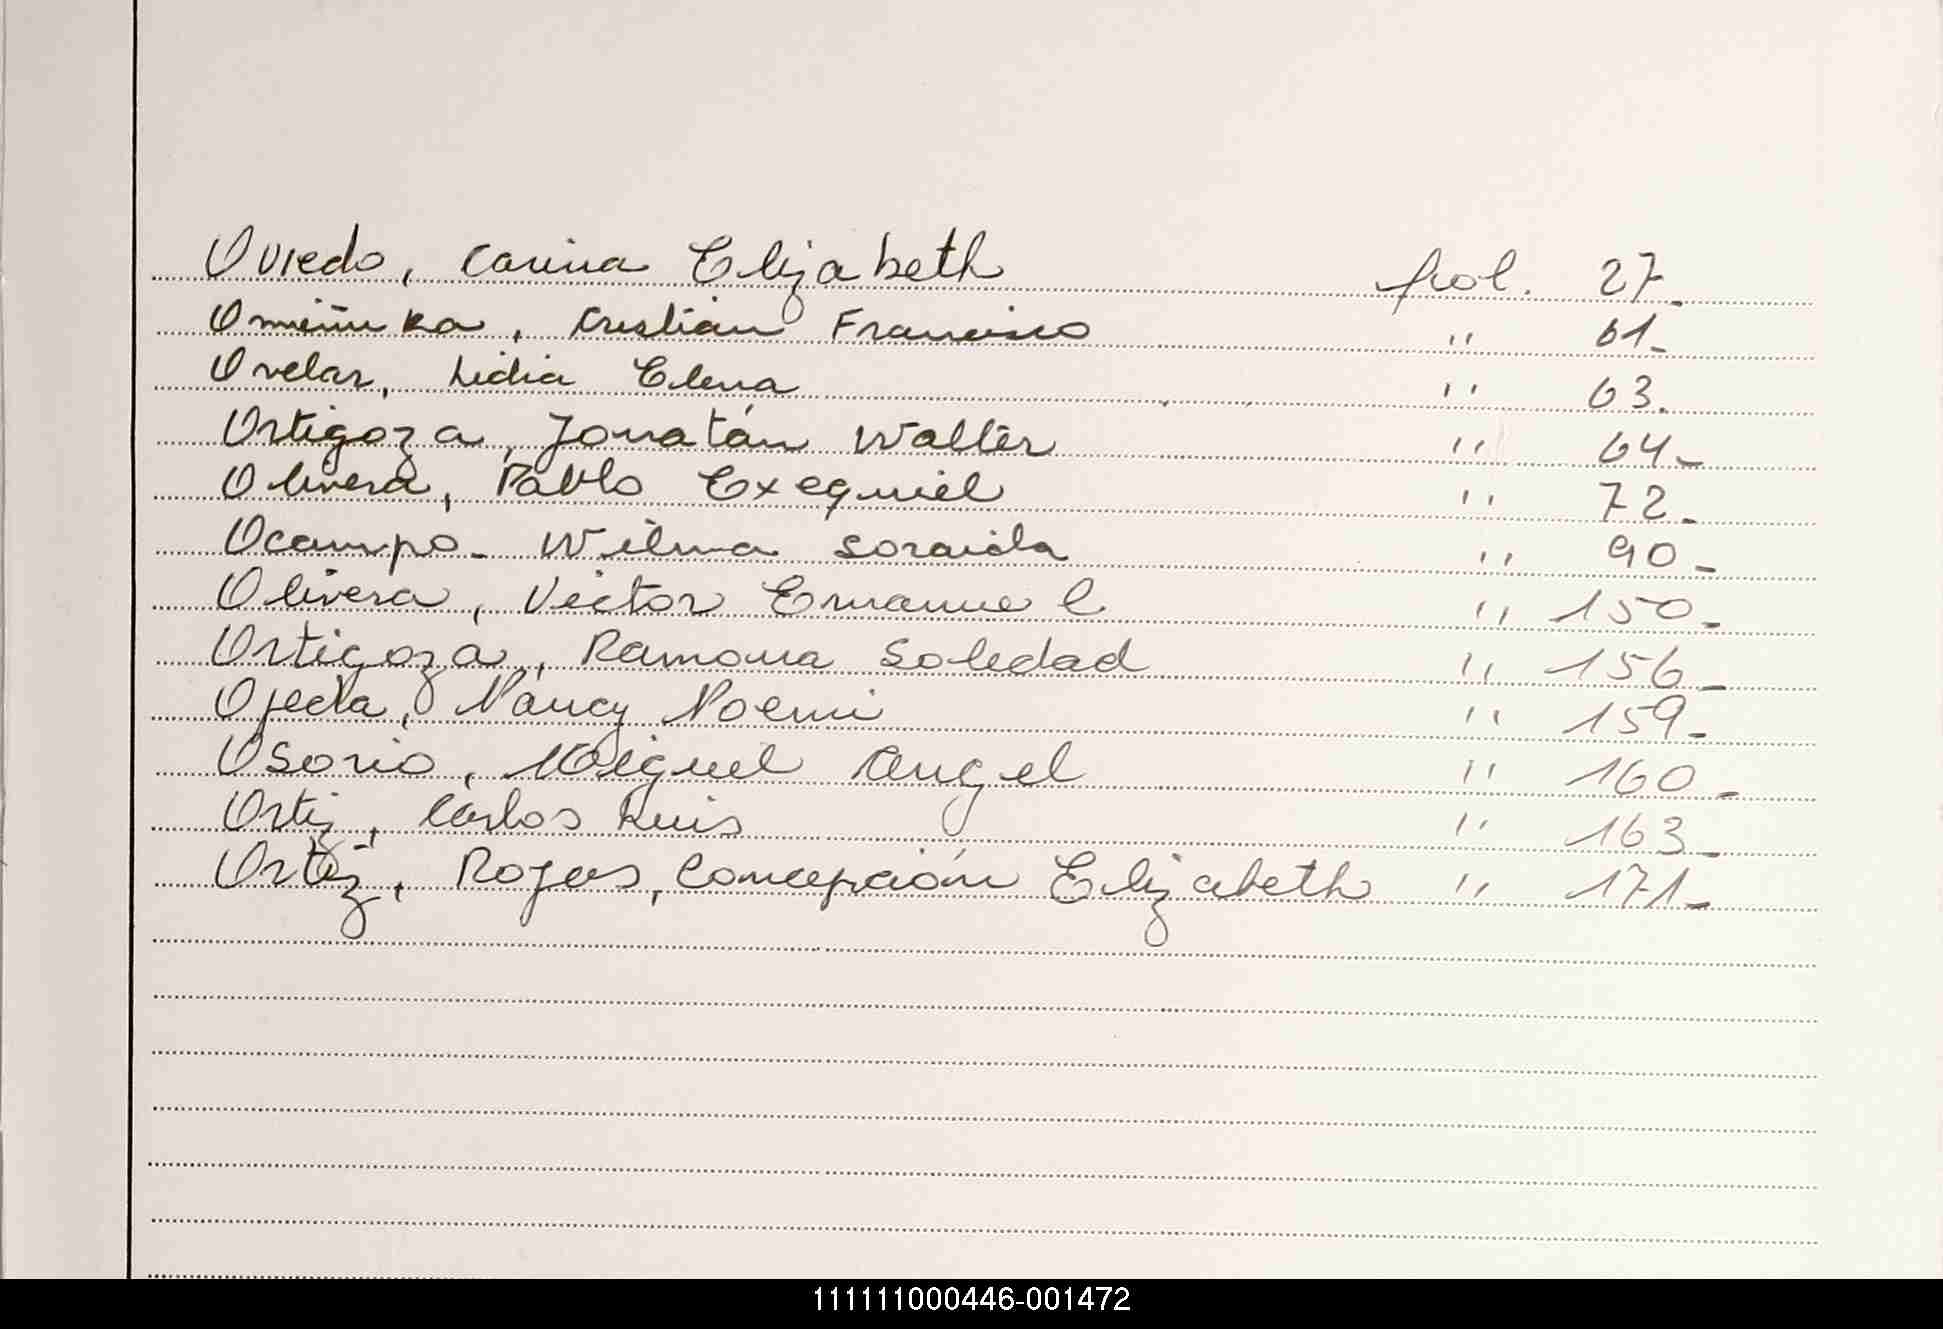 Oviedo, Carina Elizabeth fol. 27_
Cristián Francisco " 61_
Ovelar, Lidia Elena " 63.
Ortigoza, Jonatán Walter " 64_
Olivera, Pablo Exequiel " 72_
Ocampo_ Wilma Soraida " 90_
Olivera, Victor Emanuel " 150_
Ortigoza, Ramona Soledad " 156_
Ojeda, Nancy Noemi " 159_
Osorio, Miguel Angel " 160_
Ortiz, Carlos Luis " 163_
Ortiz, Rojas, Concepción Elizabeth " 171_
111111000446-001472